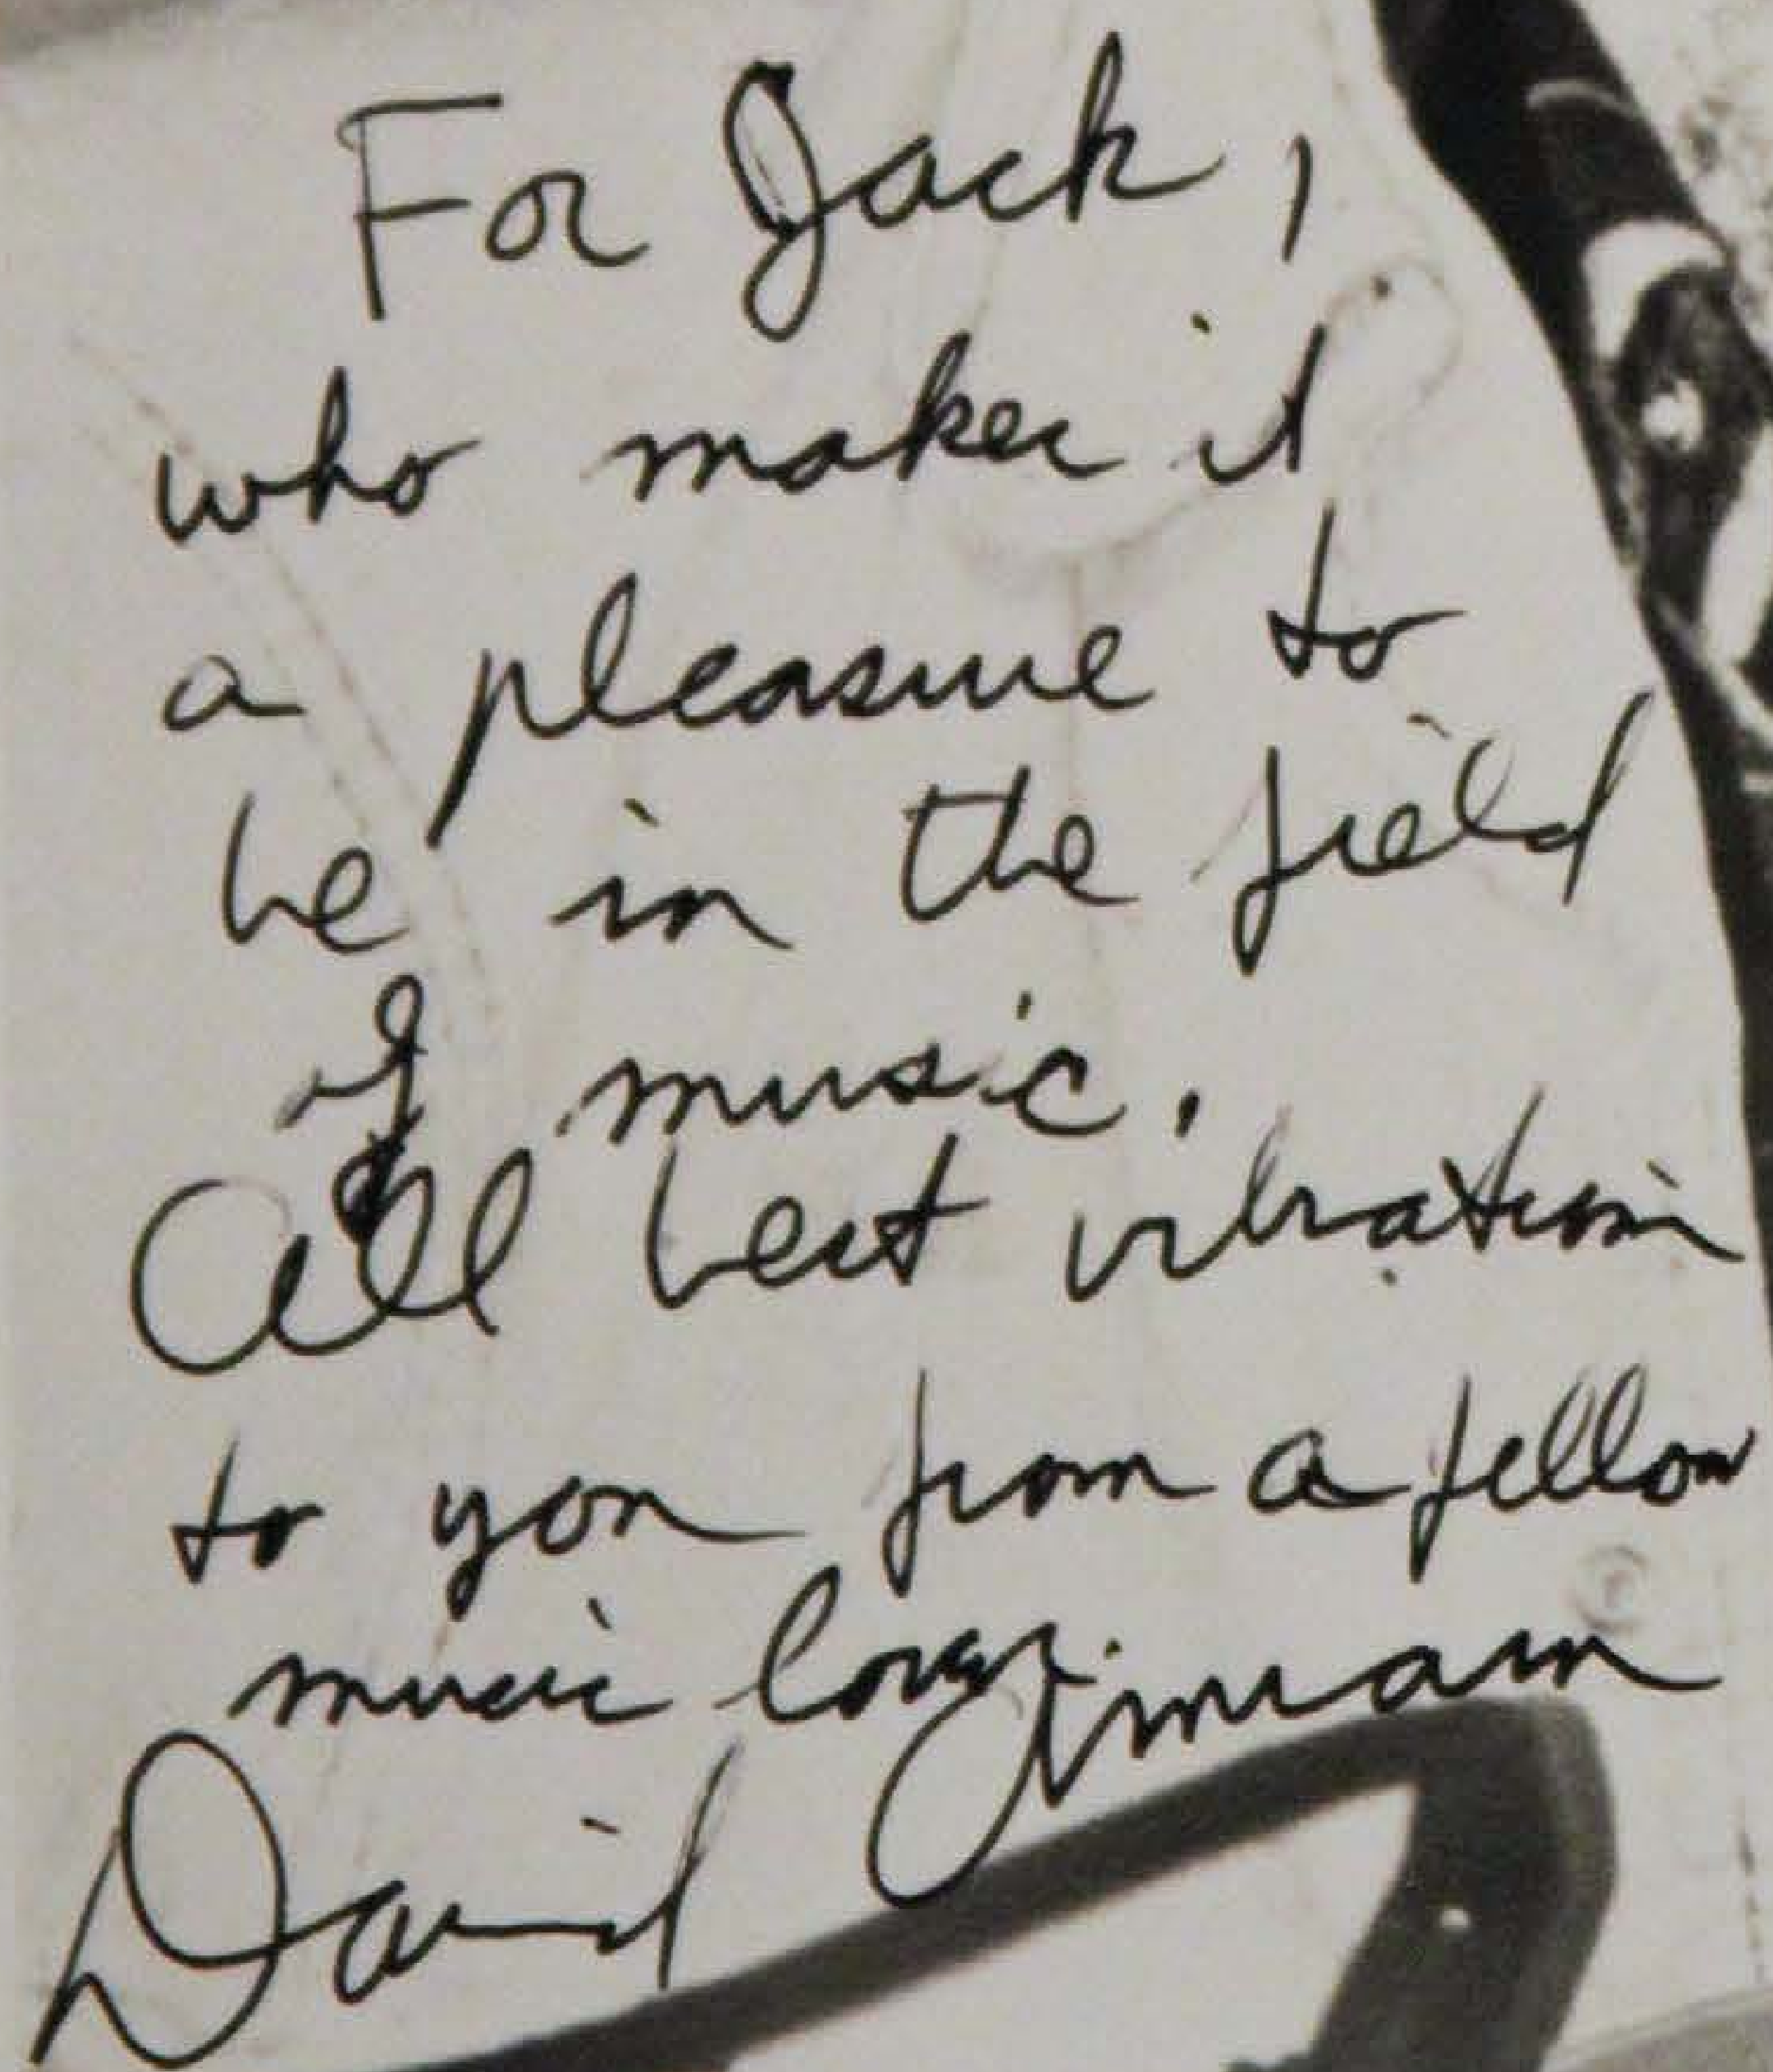 For Jack,
who makes it
a pleasure to
be in the field
of music.
All best vibration
to you from a fellow
music lover
David Amram